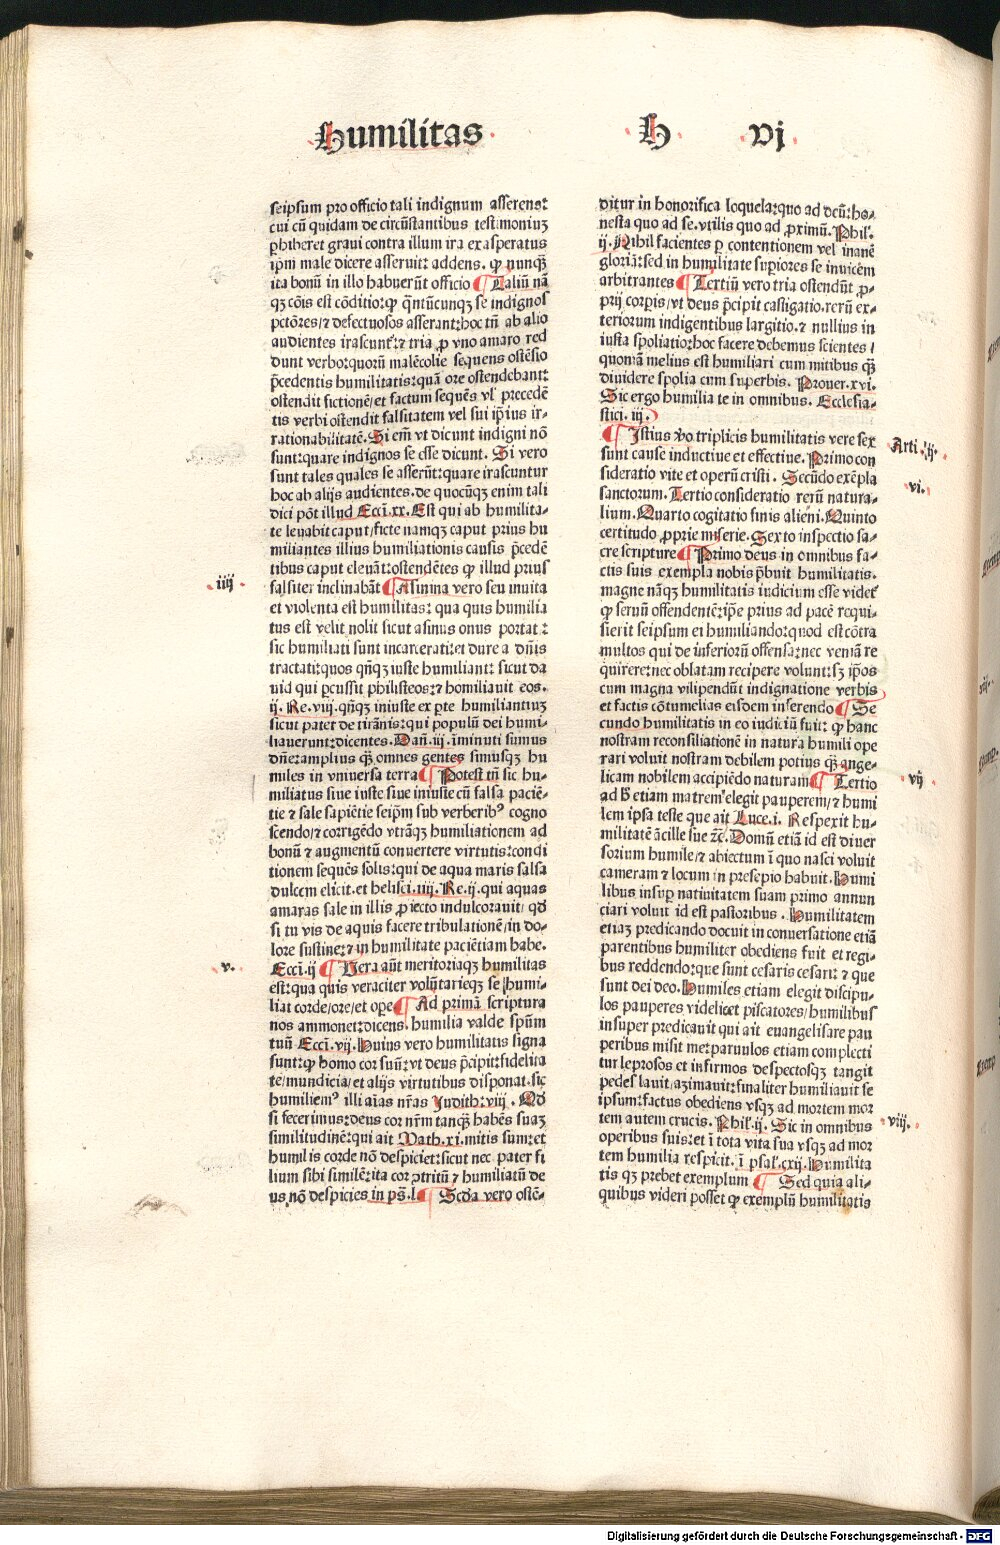 Humilitas
H vj
seipsum pro officio tali indignum asserens:
cui cū quidam de circūstantibus testimoniuꝫ
ꝑhiberet graui contra illum ira exasperatus
ip̄m male dicere asseruit: addens. ꝙ nunqꝫ
ita bonū in illo habuerūt officio Taliū nā
qꝫ cōis est cōditio: ꝙ q̄ntūcunqꝫ se indignos
pctōres/ ⁊ defectuosos asserant: hoc tn̄ ab alio
audientes irascunt̄: ⁊ tria ꝓ vno amaro red
dunt verbo: quorū malēcolie sequens ostēsio
p̄cedentis humilitatis: quā ore ostendebant:
ostendit fictionē/ et factum sequēs vl̓ precedē
tis verbi ostendit falsitatem vel sui ip̄ius ir-
rationabilitatē. Si em̄ vt dicunt indigni nō
sunt: quare indignos se esse dicunt. Si vero
sunt tales quales se asserūt: quare irascuntur
hoc ab alijs audientes. de quocūqꝫ enim tali
dici pōt illud Ecci̅. xx. Est qui ab humilita-
te leuabit caput/ ficte namqꝫ caput prius hu
miliantes illius humiliationis causis p̄cedē
tibus caput eleuāt: ostendētes ꝙ illud prius
falsiter inclinabāt Asinina vero seu inuita
iiij
et violenta est humilitas: qua quis humilia
tus est velit nolit sicut asinus onus portat:
sic humiliati sunt incarcerati: et dure a dn̄is
tractati: quos qn̄qꝫ iuste humiliant: sicut da
uid qui ꝑcussit philisteos: ⁊ homiliauit eos.
ij. Re. viij. qn̄qꝫ iniuste ex ꝑte humiliantiuꝫ
sicut pater de tirānis: qui populū dei humi-
liauerunt: dicentes. Dan̄. iij. iminuti sumus
dn̄e: amplius qꝫ omnes gentes simusqꝫ hu
miles in vniuersa terra Potest tn̄ sic hu-
miliatus siue iuste siue iniuste cū salsa paciē-
tie ⁊ sale sapiētie seip̄m sub verberibꝰ cogno
scendo/ ⁊ corrigēdo vtrāqꝫ humiliationem ad
bonū ⁊ augmentū conuertere virtutis: condi
tionem sequēs solis: qui de aqua maris salsa
dulcem elicit. et helisei. iiij. Re. ij. qui aquas
amaras sale in illis ꝓiecto indulcorauit/ qd̄
si tu vis de aquis facere tribulationē/ in do-
lore sustine: ⁊ in humilitate paciētiam habe.
Ecci̅. ij Vera aūt meritoriaqꝫ humilitas
v.
est: qua quis veraciter volūtarieqꝫ se humi-
liat corde/ ore/ et oꝑe Ad primā scriptura
nos ammonet: dicens. humilia valde spūm
tuū Ecci̅. vij. Huius vero humilitatis signa
sunt: ꝙ homo cor suū: vt deus p̄cipit: fidelita
te/ mundicia/ et alijs virtutibus disponat. sic
humiliemꝰ illi aīas nr̄as Judith. viij. Qd̄
si fecerimus: deus cor nr̄m tanqꝫ habēs suaꝫ
similitudinē: qui ait Math. xi. mitis sum: et
humilis corde nō despiciet: sicut nec pater fi
lium sibi similē: ita cor ꝯtritū ⁊ humiliatū de
us nō despicies in ps̄. l Scd̄a vero ostē-
ditur in honorifica loquela: quo ad deū: ho-
nesta quo ad se. vtilis quo ad ꝓximū. Phil̓.
ij. Nihil facientes ꝑ contentionem vel inanē
gloriā: sed in humilitate suꝑiores se inuicem
arbitrantes Tertiū vero tria ostendūt ꝓ-
prij corꝑis/ vt deus p̄cipit castigatio. rerū ex-
teriorum indigentibus largitio. ⁊ nullius in
iusta spoliatio: hoc facere debemus scientes/
quoniā melius est humiliari cum mitibus qꝫ
diuidere spolia cum superbis. Prouer. xvi.
Sic ergo humilia te in omnibus. Ecclesia-
stici. iij.
Istius ꝟo triplicis humilitatis vere sex
Arti. ij.
sunt cause inductiue et effectiue. Primo con
sideratio vite et operū cristi. Secūdo exēpla
vi.
sanctorum. Tertio consideratio rerū natura-
lium. Quarto cogitatio finis alieni. Quinto
certitudo ꝓprie miserie. Sexto inspectio sa-
cre scripture Primo deus in omnibus fa-
ctis suis exempla nobis p̄buit humilitatis.
magne nāqꝫ humilitatis iudicium esse videt̄
ꝙ seruū offendentē: ip̄e prius ad pacē requi-
sierit seipsum ei humiliando: quod est cōtra
multos qui de inferiorū offensa: nec veniā re
quirere: nec oblatam recipere volunt: sꝫ ip̄os
cum magna vilipendūt indignatione verbis
et factis cōtumelias eisdem inferendo Se
cundo humilitatis in eo iudiciū fuit: ꝙ hanc
nostram reconsiliationē in natura humili ope
rari voluit nostram debilem potius qꝫ ange-
licam nobilem accipiēdo naturam Tertio
vij
ad h̄ etiam matrem elegit pauperem/ ⁊ humi
lem ipsa teste que ait Luce. i. Respexit hu-
militatē ācille sue ⁊c̄. Domū etiā id est diuer
sorium humile/ ⁊ abiectum ī quo nasci voluit
cameram ⁊ locum in presepio habuit. Humi
libus insuꝑ natiuitatem suam primo annun
ciari voluit id est pastoribus. Humilitatem
etiaꝫ predicando docuit in conuersatione etiā
parentibus humiliter obediens fuit et regi-
bus reddendo: que sunt cesaris cesari: ⁊ que
sunt dei deo. Humiles etiam elegit discipu-
los pauperes videlicet piscatores/ humilibus
insuper predicauit qui ait euangelisare pau
peribus misit me: paruulos etiam complecti
tur leprosos et infirmos despectosqꝫ tangit
pedes lauit/ azimauit: finaliter humiliauit se
ipsum: factus obediens vsqꝫ ad mortem mor
tem autem crucis. Phil̓. ij. Sic in omnibus
viij.
operibus suis: et ī tota vita sua vsqꝫ ad mor
tem humilia respicit. ī psal̓. cxij. Humilita
tis qꝫ prebet exemplum Sed quia ali-
quibus videri posset ꝙ exemplū humilitatis
Digitalisierung gefördert durch die Deutsche Forschungsgemeinschaft - DFG